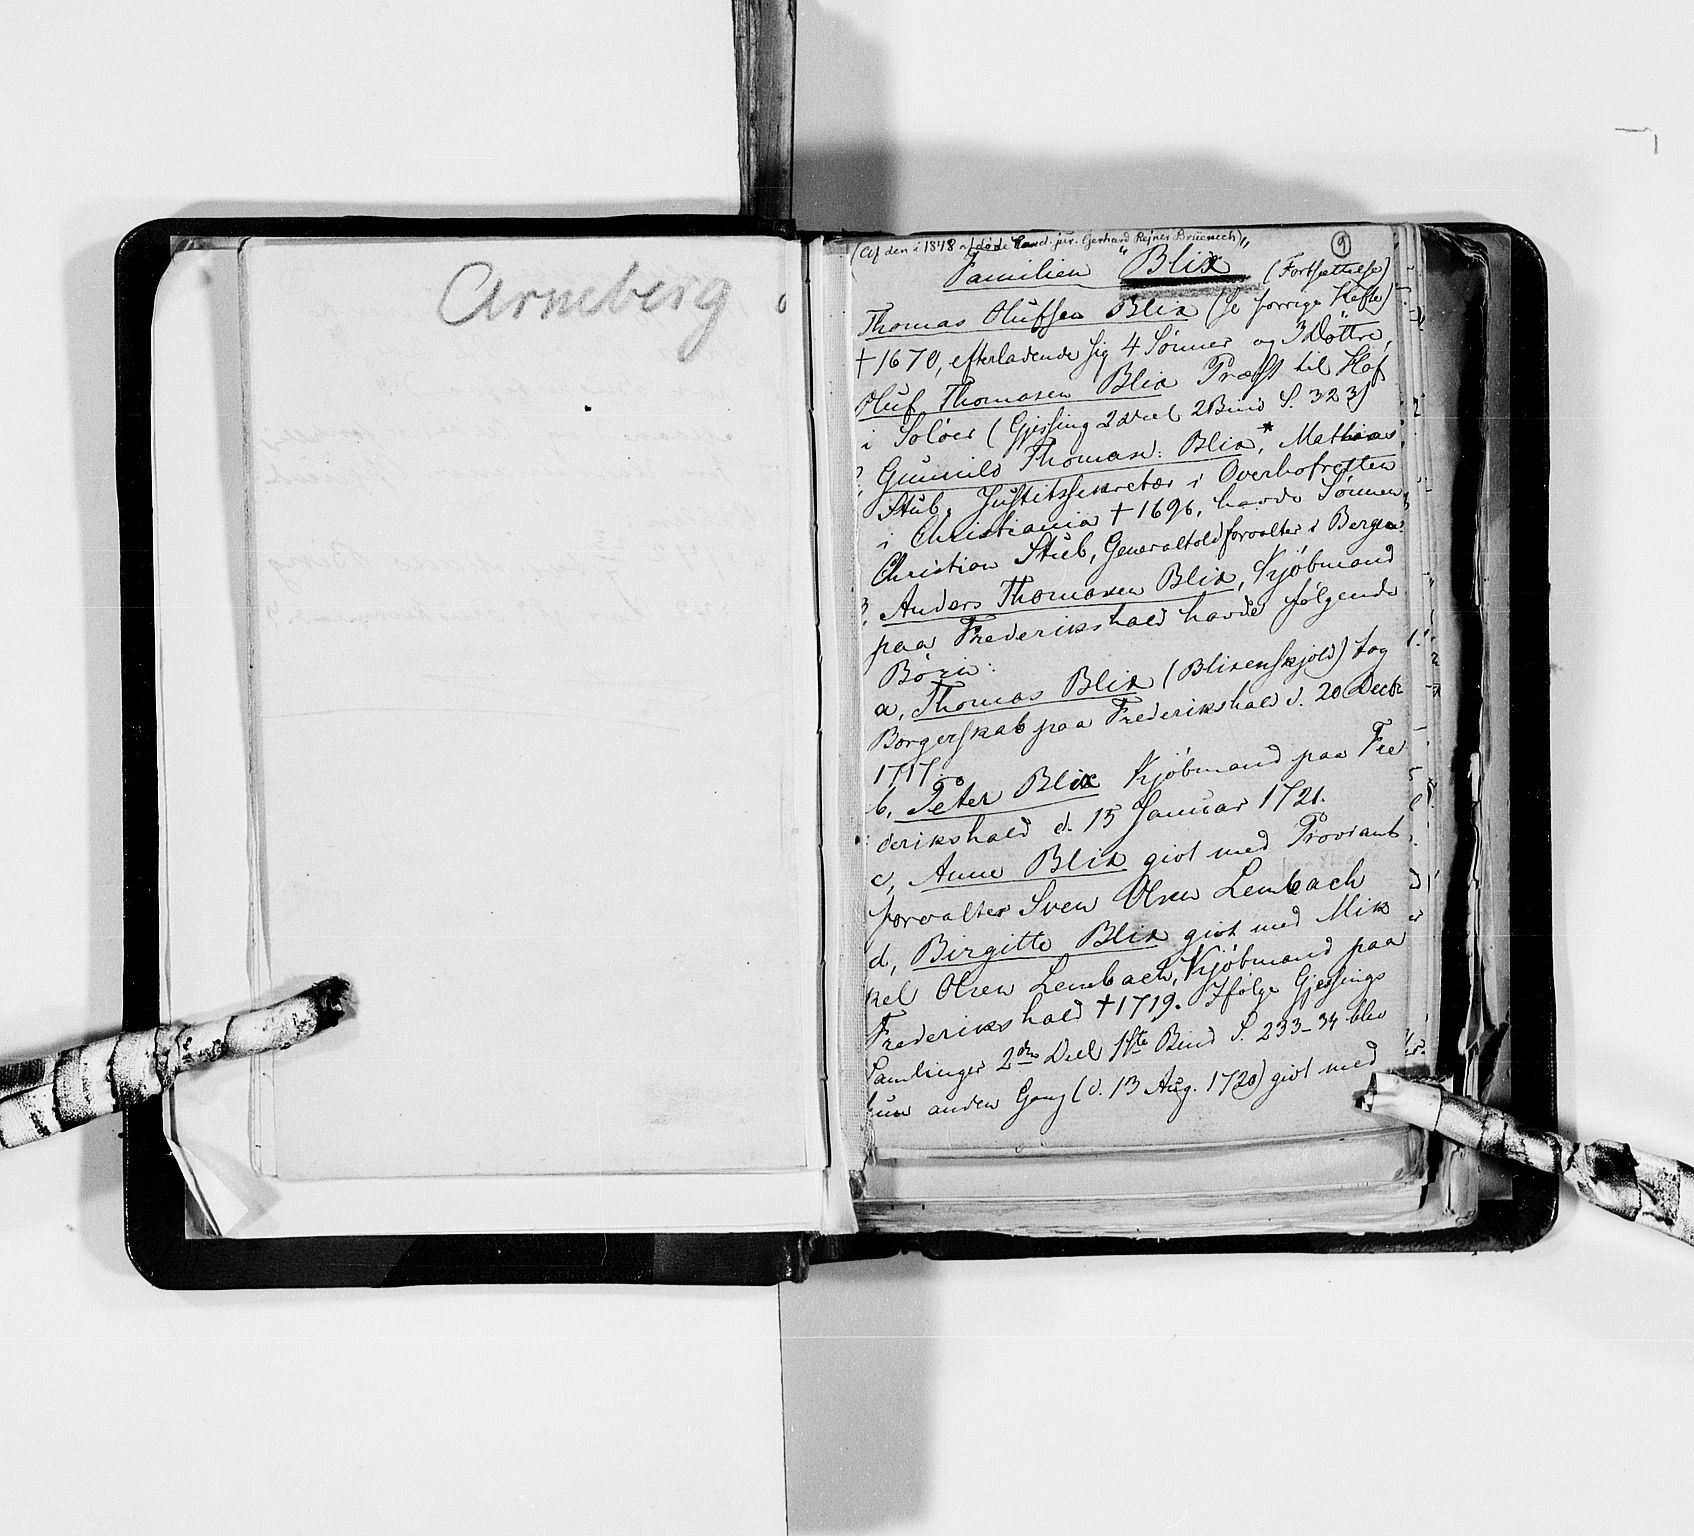 Arneberg
(Af den i 1848 afdøde Cand. jur. Gerhard Rejner Bruenech)
9
Familien "Blix" (Fortsættelse)
Thomas Olufsen Blix (se forrige Hefte)
† 1670, efterladende sig 4 Sønner og 3 Döttre,
Oluf Thomasen Blix Præst til Hof
i Soløer (Gjessing 2 Deel 2 Bind S. 323)
Gunnild Thomasn: Blix,* Mathias
Stub, Justitssekretær i Overhofretten
i Christiania † 1696, havde Sønnen
Christian Stub, Generaltoldforvalter i Bergen
3, Anders Thomasen Blix, Kjøbmand
paa Frederikshald havde følgende
Børn:
a, Thomas Blix (Blixenskjold) tog
Borgerskab paa Frederikshald d. 20 Decbr
1717.
b, Peter Blix Kjøbmand paa Fre
derikshald d. 15 Januar 1721.
c, Anne Blix givt med Proviant
forvalter Sven Olsen Lembach
d, Birgitte Blix givt med Mik
kel Olsen Lembach, Kjøbmand paa
Frederikshald † 1719. Ifølge Gjessings
Samlinger 2den Deel 1ste Bind S. 233-34 blev
hun anden Gang (d. 13 Aug. 1720) givt med